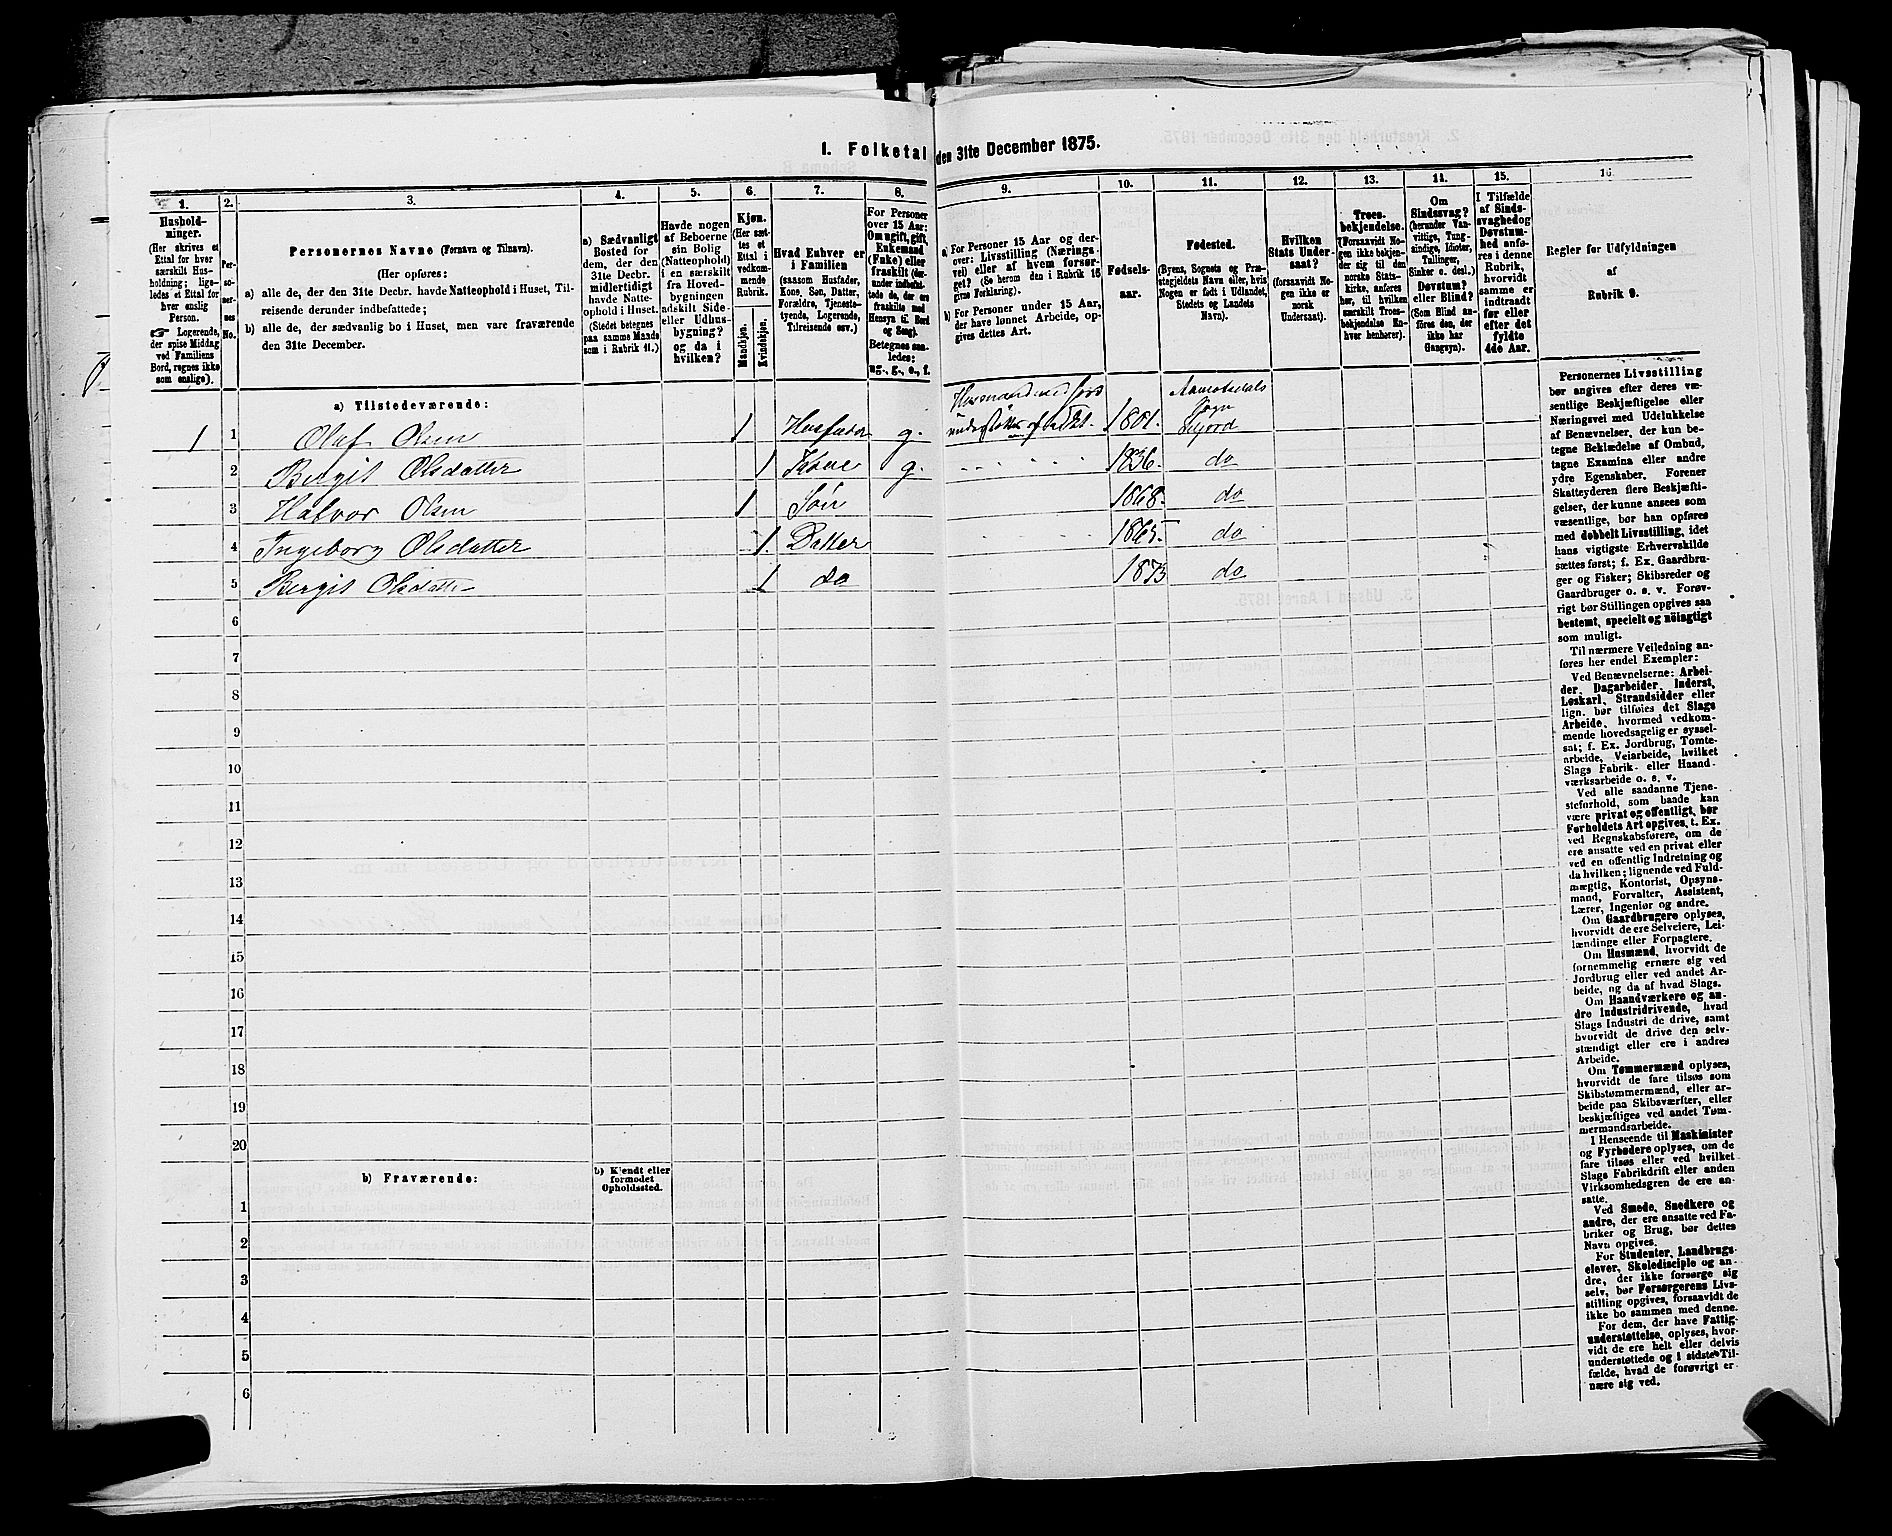 I. Folketal den 31te December 1875.
1.
2.
3.
4.
5.
6.
7.
8.
9.
10.
11.
12.
13.
14.
15.
16.
Hushold-
ninger.
(Her skrives et
Ettal for hver
særskilt Hus-
holdning; lige-
ledes et Ettal for
hver enslig
Person.
☞ Logerende,
der spise Middag
ved Familiens
Bord, regnes ikke
som enslige).
Per-
so-
ner-
nes
No.
Personernes Navne (Fornavn og Tilnavn).
(Her opføres:
a) alle de, der den 31te Decbr. havde Natteophold i Huset, Til-
reisende derunder indbefattede;
b) alle de, der sædvanlig bo i Huset, men vare fraværende
den 31te December.
a) Sædvanligt
Bosted for
dem, der den
31te Decbr.
midlertidigt
havde Natte-
ophold i Huset.
(Stedet betegnes
paa samme Maade
som i Rubrik 11.)
Havde nogen
af Beboerne
sin Bolig
(Natteophold)
i en særskilt
fra Hoved-
bygningen
adskilt Side-
eller Udhus-
bygning?
og da i
hvilken?
Kjøn.
(Her sæt-
tes et
Ettal i
vedkom-
mende
Rubrik.
Mandkjøn.
Kvindekjøn.
Hvad Enhver er
i Familien
(saasom Husfader,
Kone, Søn, Datter,
Forældre, Tjeneste-
tyende, Logerende,
Tilreisende osv.)
For Personer
over 15 Aar:
Om ugift, gift,
Enkemand
(Enke) eller
fraskilt (der-
under indbefat-
tede de, der ere
fraskilte med
Hensyn til Bord
og Seng).
Betegnes saa-
ledes:
ug., g., e., f.
a) For Personer 15 Aar og der-
over: Livsstilling (Nærings-
vei) eller af hvem forsør-
get? (Se herom den i Rubrik 16
givne Forklaring).
b) For Personer under 15 Aar,
der have lønnet Arbeide, op-
gives dettes Art.
Fødsels-
aar.
Fødested.
(Byens, Sognets og Præ-
stegjeldets Navn eller, hvis
Nogen er født i Udlandet,
Stedets og Landets
Navn).
Hvilken
Stats Under-
saat?
(forsaavidt No-
gen ikke er
norsk
Undersaat).
Troes-
bekjendelse.
(Forsaavidt No-
gen ikke bekjen-
der sig til den
norske Stats-
kirke, anføres
her, til hvilken
særskilt Troes-
bekjendelse En-
hver henhører).
Om
Sindssvag?
(herunder Van-
vittige, Tung-
sindige, Idioter,
Tullinger,
Sinker o. desl.)
Døvstum?
eller Blind?
(Som Blind an-
føres den, der
ikke har
Gangsyn).
I Tilfælde
af Sinds-
svaghed og
Døvstum-
hed anfø-
res i denne
Rubrik,
hvorvidt
samme er
indtraadt
før eller
efter det
fyldte
4de Aar.
Regler for Udfyldningen
af
Rubrik 9.
a) Tilstedeværende:
1 1 Olaf Olsen 1 Husfader g. Husmand med Jord 1801. Aamotsdals Sogn
2 Bergit Olsdatter 1 Kone g. 1836. do
3 Halvor Olsen 1 Søn 1868. do
4 Ingeborg Olsdatter 1. Datter 1865. do
5 Bergit Olsdatter 1 do 1873 do
6
7
8
9
10
11
12
13
14
15
16
17
18
19
20
b) Fraværende:
b) Kjendt eller
formodet
Opholdssted.
1
2
3
4
5
6
Personernes Livsstilling
bør angives efter deres væ-
sentlige Beskjæftigelse eller
Næringsvei med Udelukkelse
af Benævnelser, der kun be-
tegne Beklædelse af Ombud,
tagne Examina eller andre
ydre Egenskaber. Forener
Skatteyderen flere Beskjæfti-
gelser, der kunne ansees som
væsentlige, bør han opføres
med dobbelt Livsstilling, idet
hans vigtigste Erhvervskilde
sættes først; f. Ex. Gaardbru-
ger og Fisker; Skibsreder og
Gaardbruger o. s. v. Forøv-
rigt bør Stillingen opgives saa
bestemt, specielt og nöiagtigt
som muligt.
Til nærmere Veiledning an-
føres her endel Exempler:
Ved Benævnelserne: Arbei-
der, Dagarbeider, Inderst,
Løskarl, Strandsidder eller
lign. bør tilføies det Slags
Arbeide, hvormed vedkom-
mende hovedsagelig er syssel-
sat; f. Ex. Jordbrug, Tomte-
arbeide, Veiarbeide, hvilket
Slags Fabrik- eller Haand-
værksarbeide o. s. v.
Ved alle saadanne Tjene-
steforhold, som baade kan
være privat og offentligt, bør
Forholdets Art opgives, t. Ex.
ved Regnskabsførere, om de
ere ansatte ved en privat eller
ved en offentlig Indretning og
da hvilken; lignende ved Fuld-
mægtig, Kontorist, Opsyns-
mand, Forvalter, Assistent,
Lærer, Ingeniør og andre.
Om Gaardbrugere oplyses,
hvorvidt de ere Selveiere, Lei-
lændinge eller Forpagtere.
Om Husmænd, hvorvidt de
fornemmelig ernære sig ved
Jordbrug eller ved andet Ar-
beide, og da af hvad Slags.
Om Haandværkere og an-
dre Industridrivende, hvad
Slags Industri de drive, samt
hvorvidt de drive den selv-
stændigt eller ere i andres
Arbeide.
Om Tømmermænd oplyses,
hvorvidt de fare tilsøs som
Skibstømmermænd, eller ar-
beide paa Skibsværfter, eller
beskjæftiges ved andet Tøm-
mermandsarbeide.
I Henseende til Maskinister
og Fyrbødere oplyses, om de
fare tilsøs eller ved hvilket
Slags Fabrikdrift eller anden
Virksomhedsgren de ere an-
satte.
Ved Smede, Snedkere og
andre, der ere ansatte ved Fa-
briker og Brug, bør dettes
Navn opgives.
For Studenter, Landbrugs-
elever, Skoledisciple og an-
dre, der ikke forsørge sig
selv, bør Forsørgerens Livs-
stilling opgives, forsaavidt de
ikke bo sammen med denne.
For dem, der have Fattig-
understøttelse, oplyses, hvor-
vidt de ere helt eller delvis
understøttede og i sidste Til-
fælde, hvad de forøvrigt er-
nære sig ved.